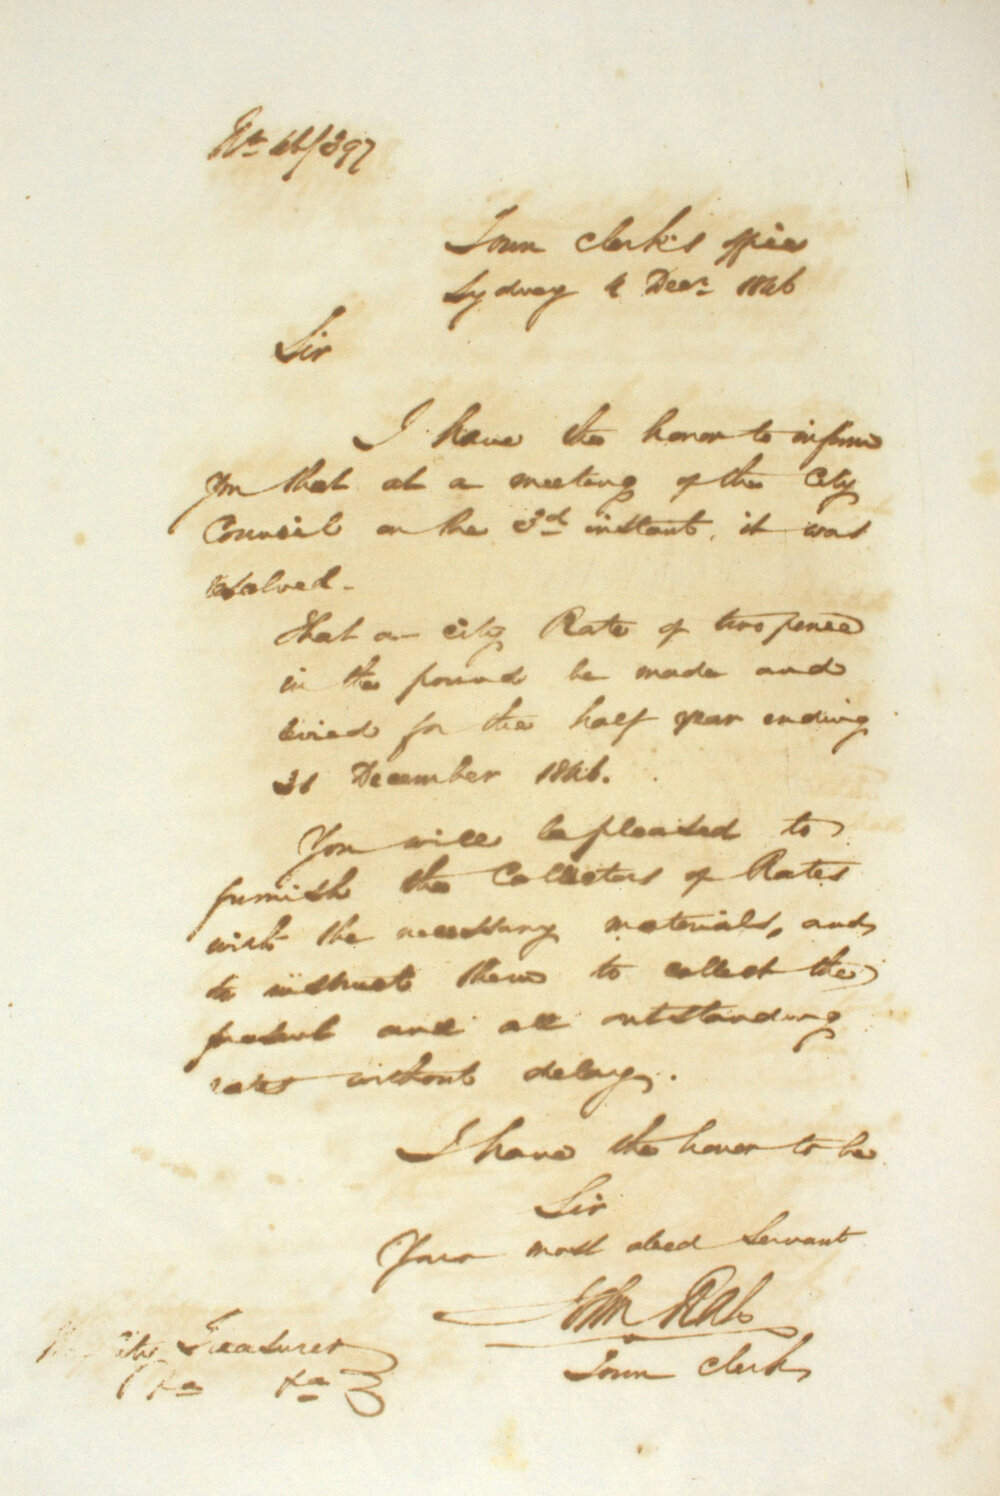 No 46/397
Town Clerk's Office
Sydney 4 Decr 1846
Sir
I have the honor to inform
You that at a meeting of the City
Council on the 3rd instant, it was
resolved -
That a City Rate of two pence
in the pound be made and
levied for the half year ending
31 December 1846.
You will be pleased to
furnish the Collectors of Rates
with the necessary materials, and
to instruct them to collect the
present and all outstanding
rates without delay.
I have the honor to be
Sir
Your most obed Servant
John Rae
Town Clerk
City Treasurer
&a &a